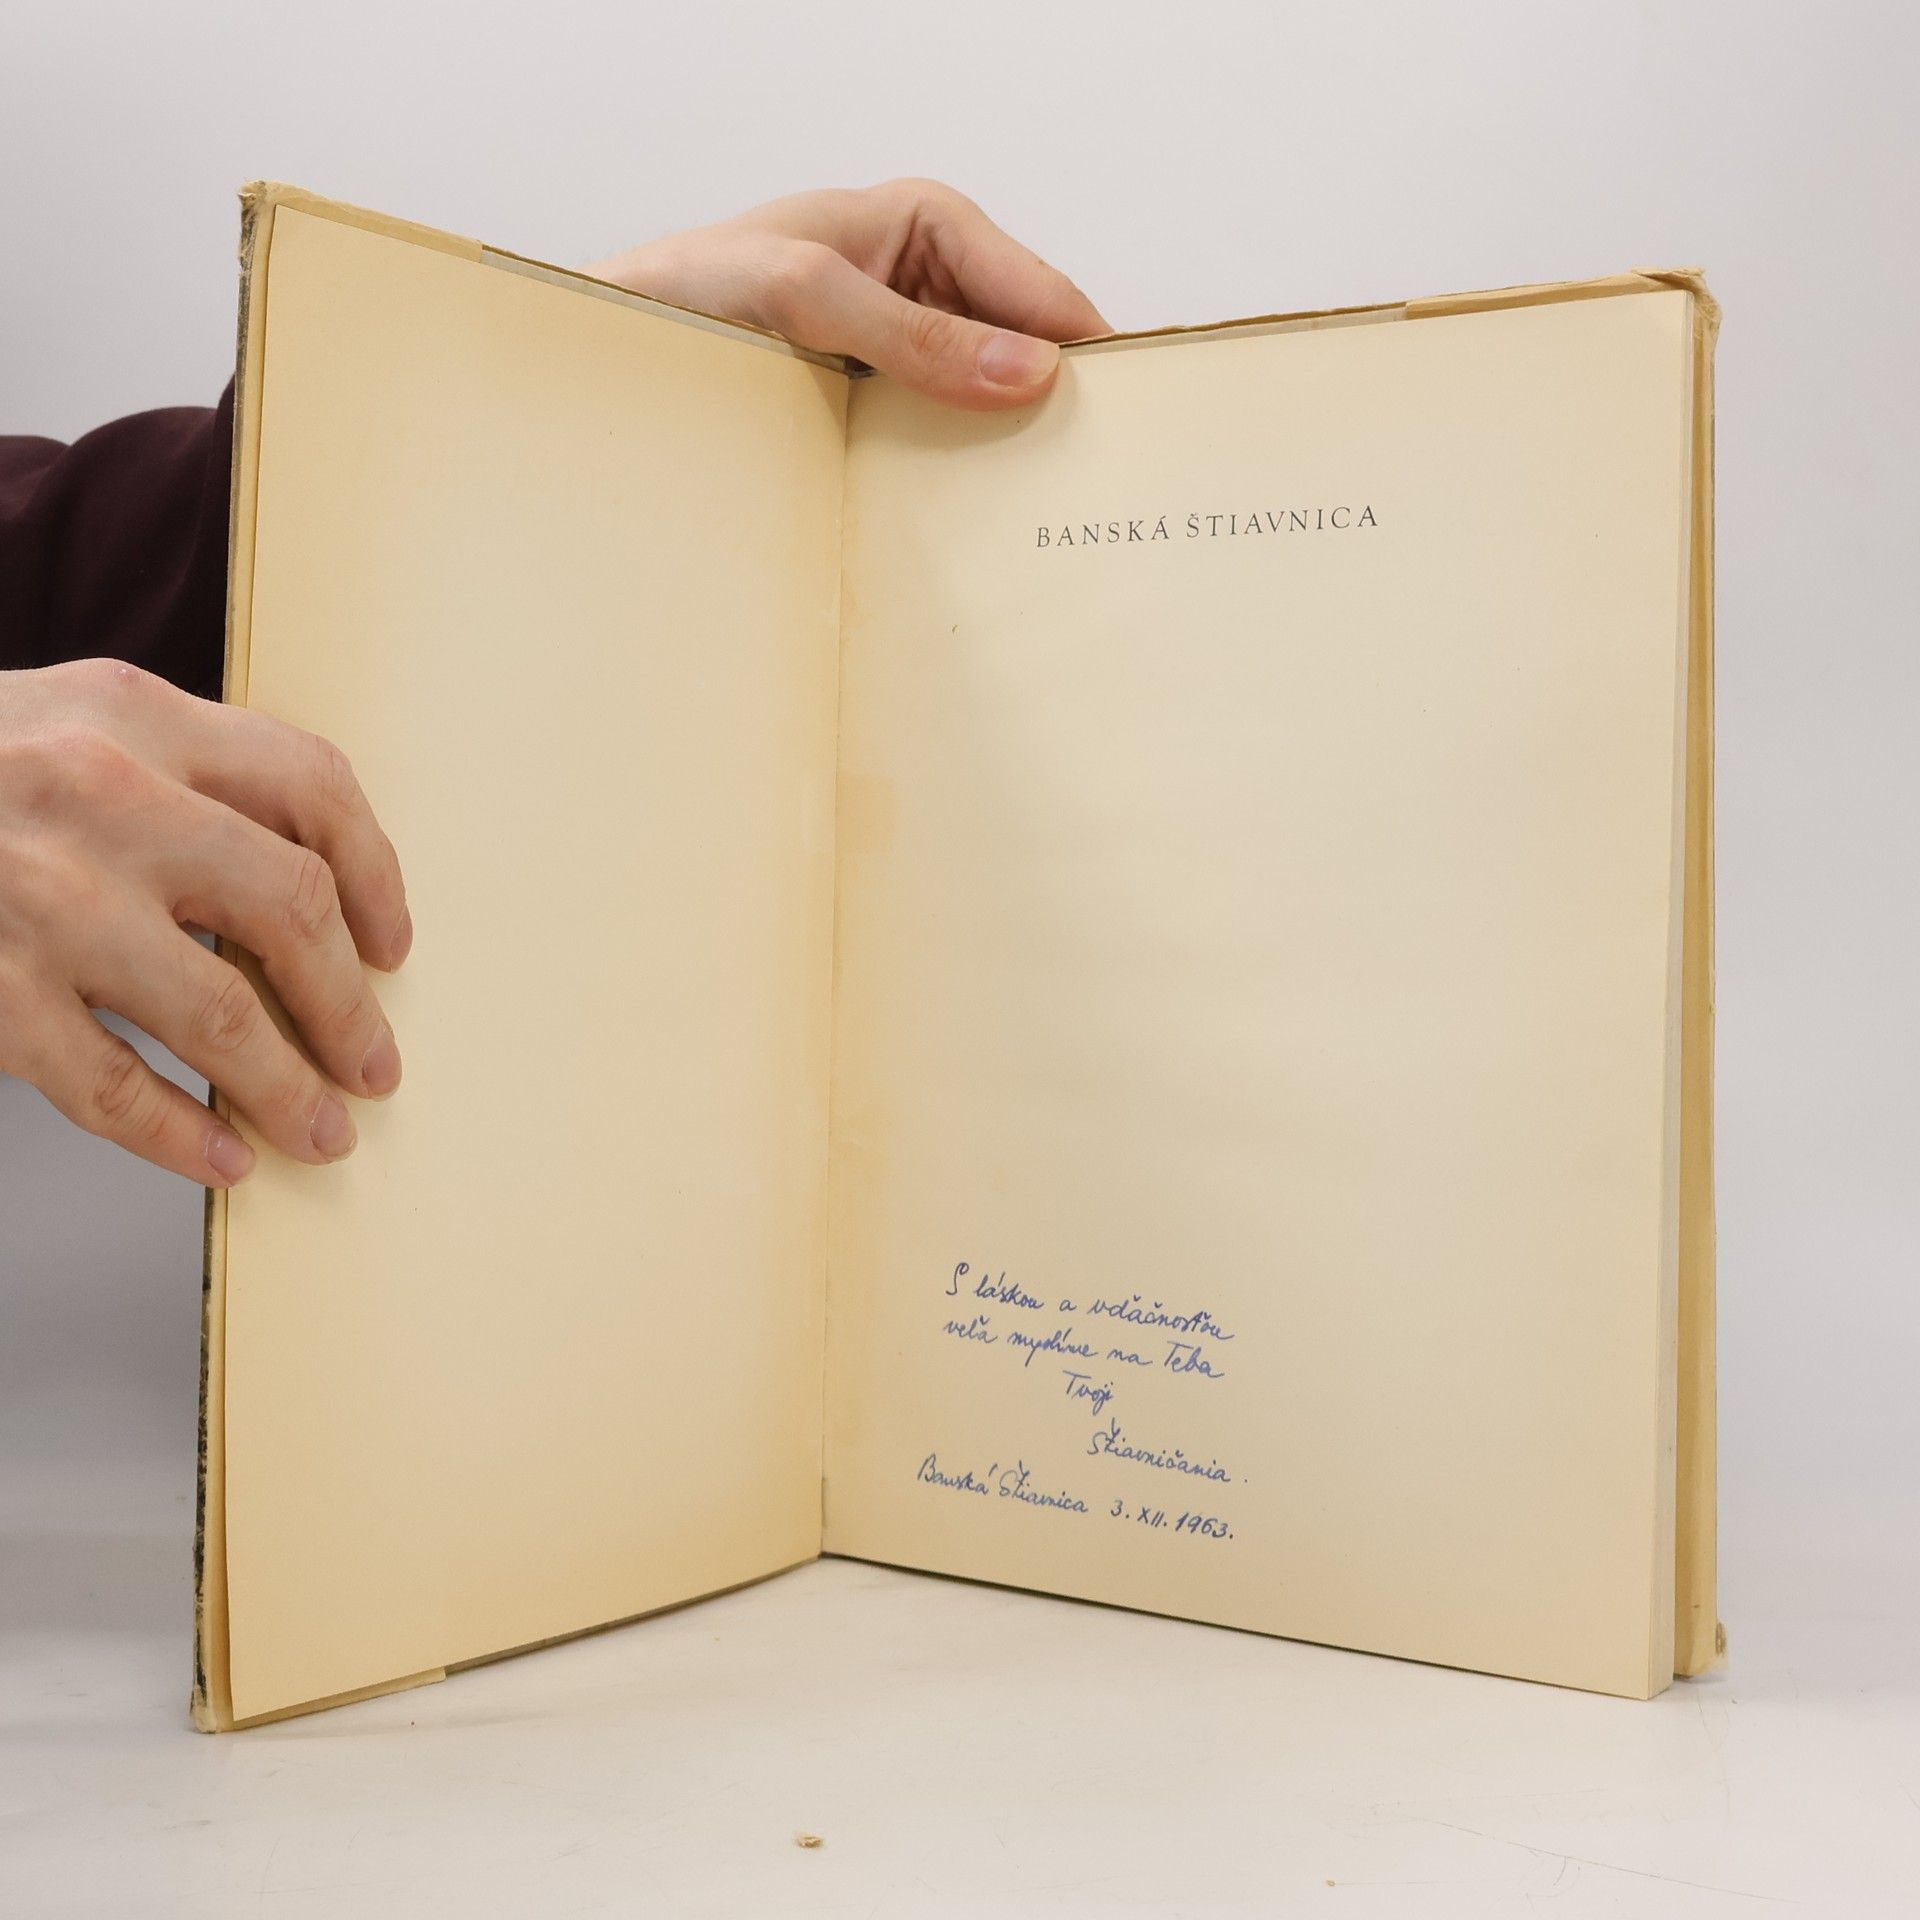 BANSKÁ ŠTIAVNICA
S láskou a vďačnosťou
veľa myslíme na Teba
Tvoji
Štiavničania.
Banská Štiavnica 3. XII. 1963.